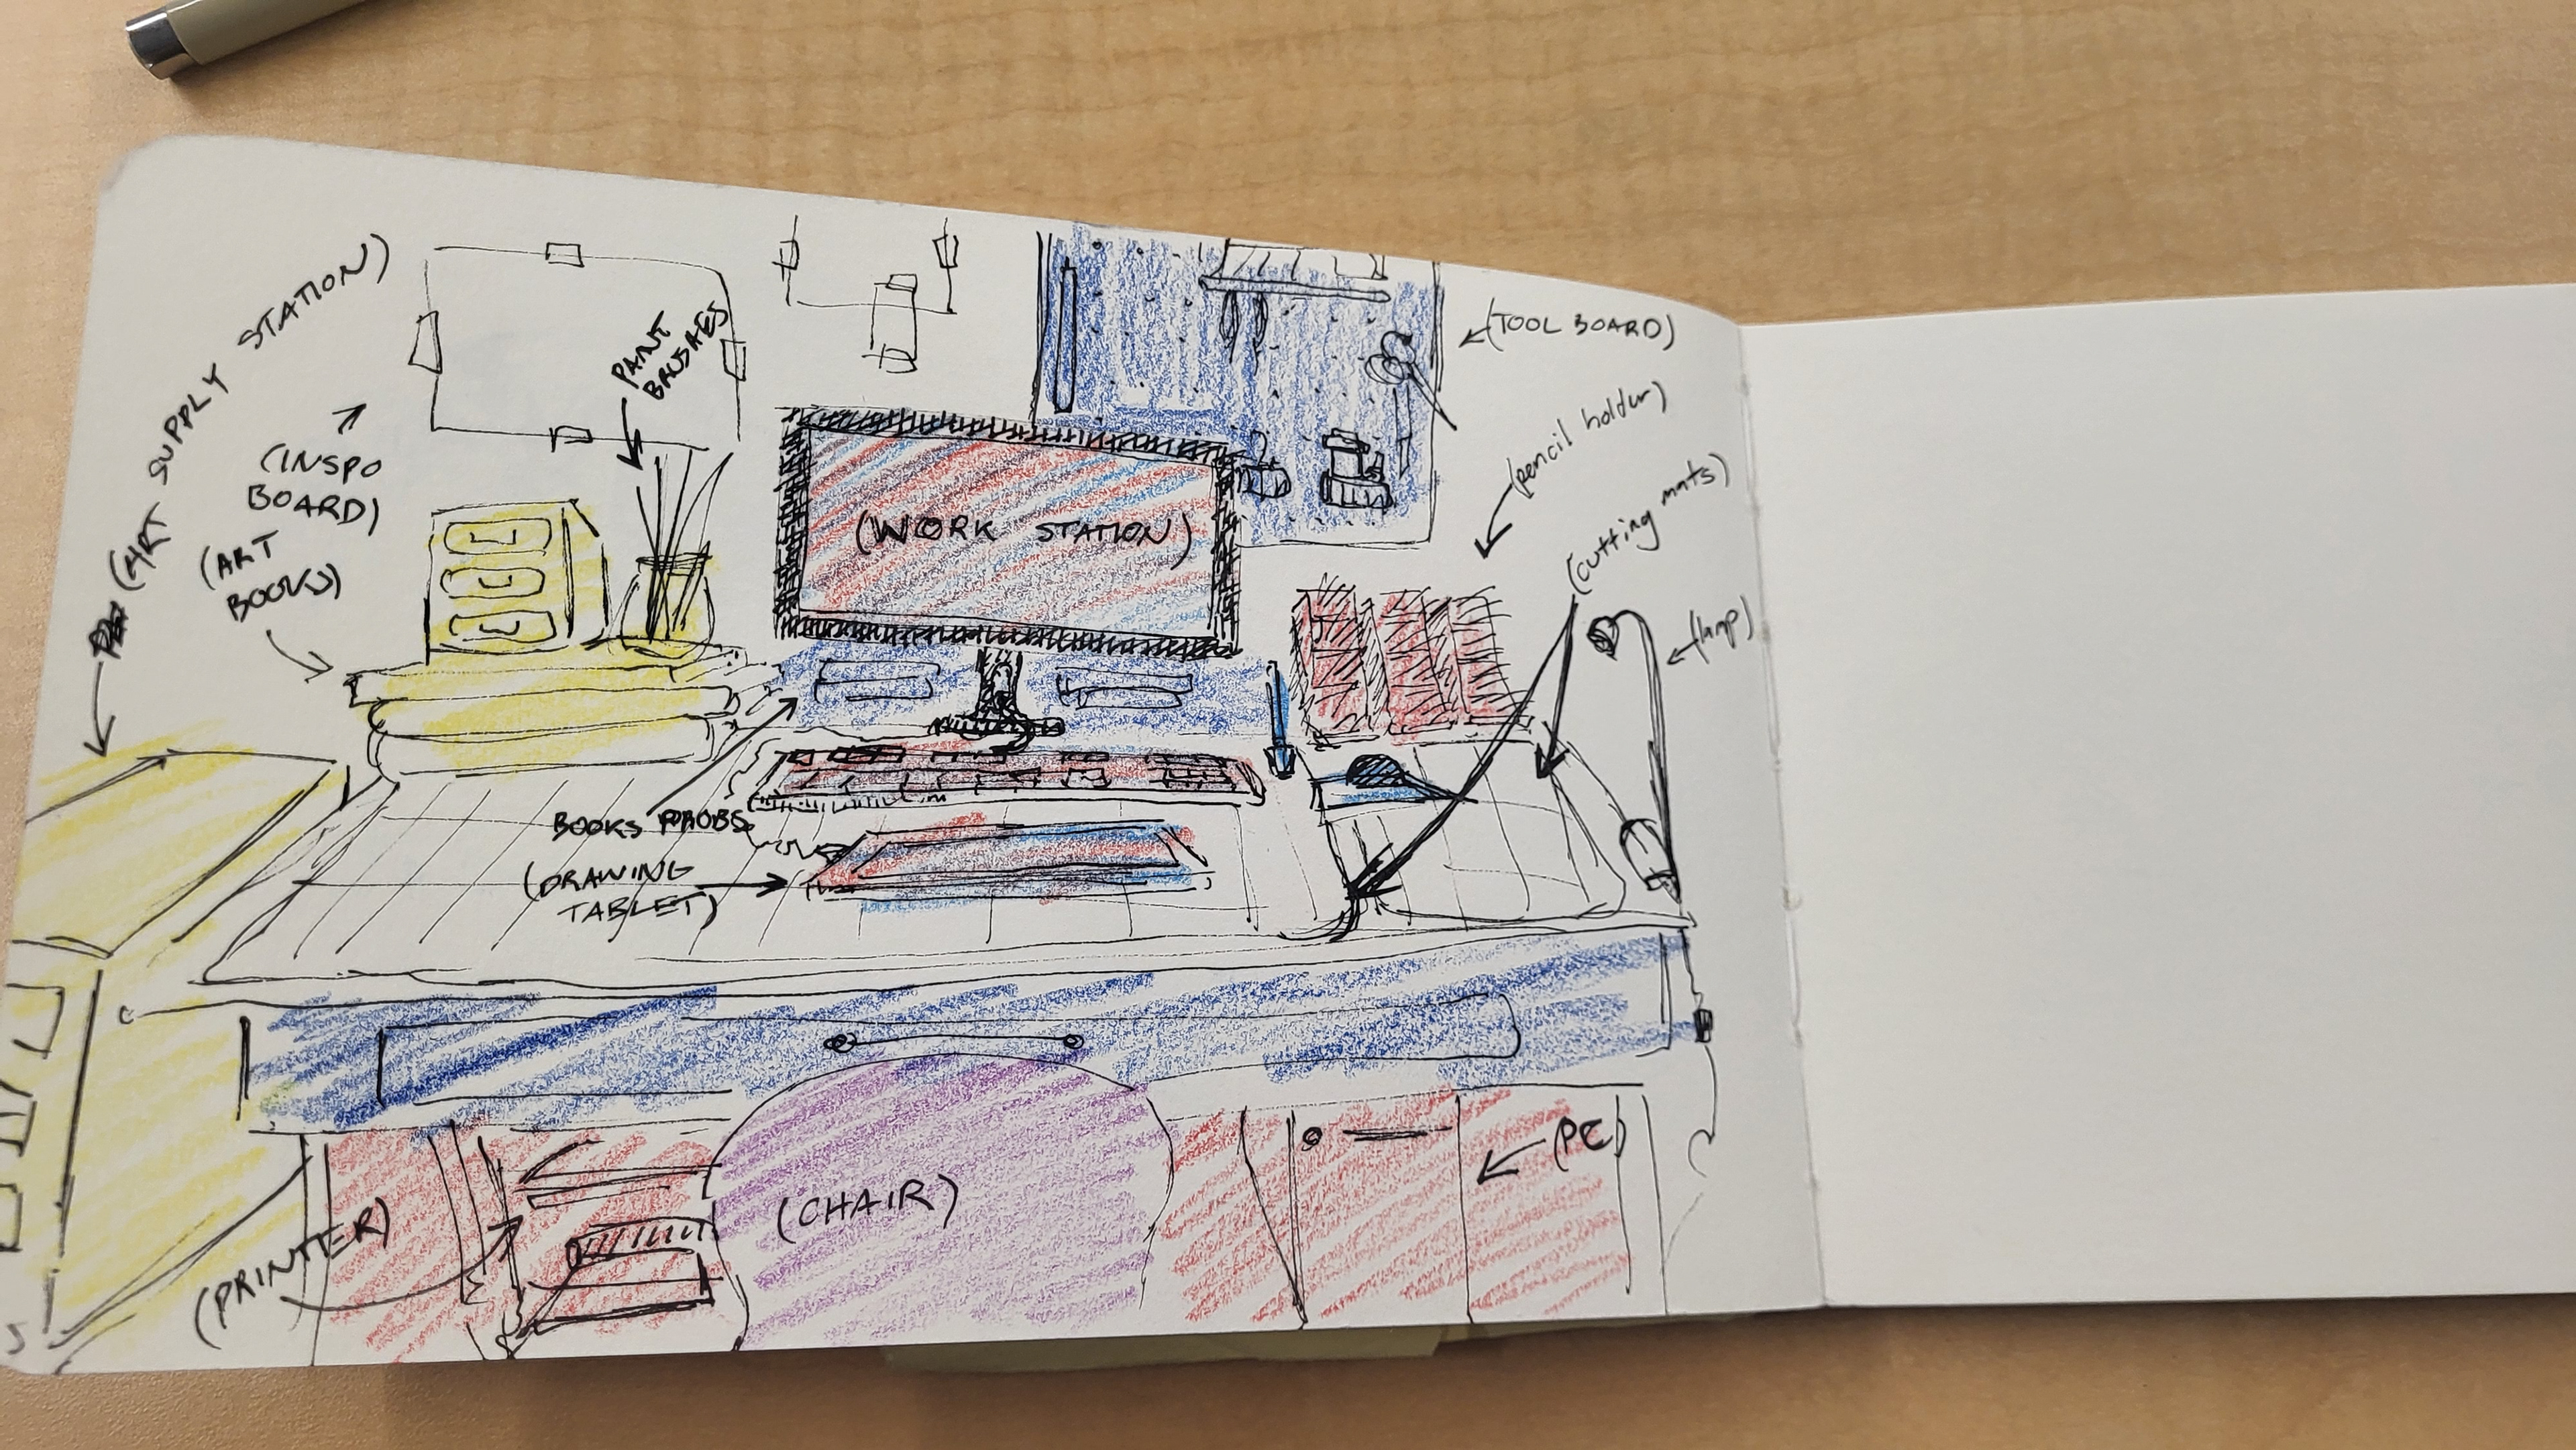 (ART SUPPLY STATION)
(INSPO
BOARD)
(ART
BOOKS)
PAINT
BRUSHES
(WORK STATION)
(TOOL BOARD)
(pencil holder)
(cutting mats)
(lamp)
BOOKS PROBS
(DRAWING
TABLET)
(PRINTER)
(CHAIR)
(PC)